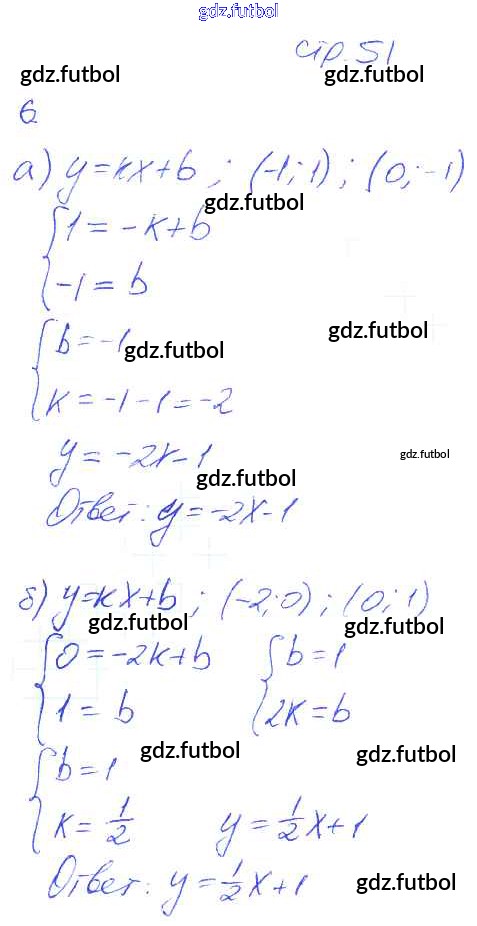 gdz.futbol
стр. 51
gdz.futbol gdz.futbol
6
а) y=kx+b ; (-1; 1) ; (0; -1)
gdz.futbol
{1 = -k+b
-1 = b
gdz.futbol
{b = -1
gdz.futbol
k = -1 - 1 = -2
y = -2x-1
gdz.futbol
gdz.futbol
Ответ: y = -2x-1
б) y=kx+b ; (-2; 0) ; (0; 1)
gdz.futbol gdz.futbol
{0 = -2k+b {b = 1
1 = b 2k = b
gdz.futbol gdz.futbol
{b = 1
k = 1/2 y = 1/2 x+1
Ответ: y = 1/2 x+1
gdz.futbol